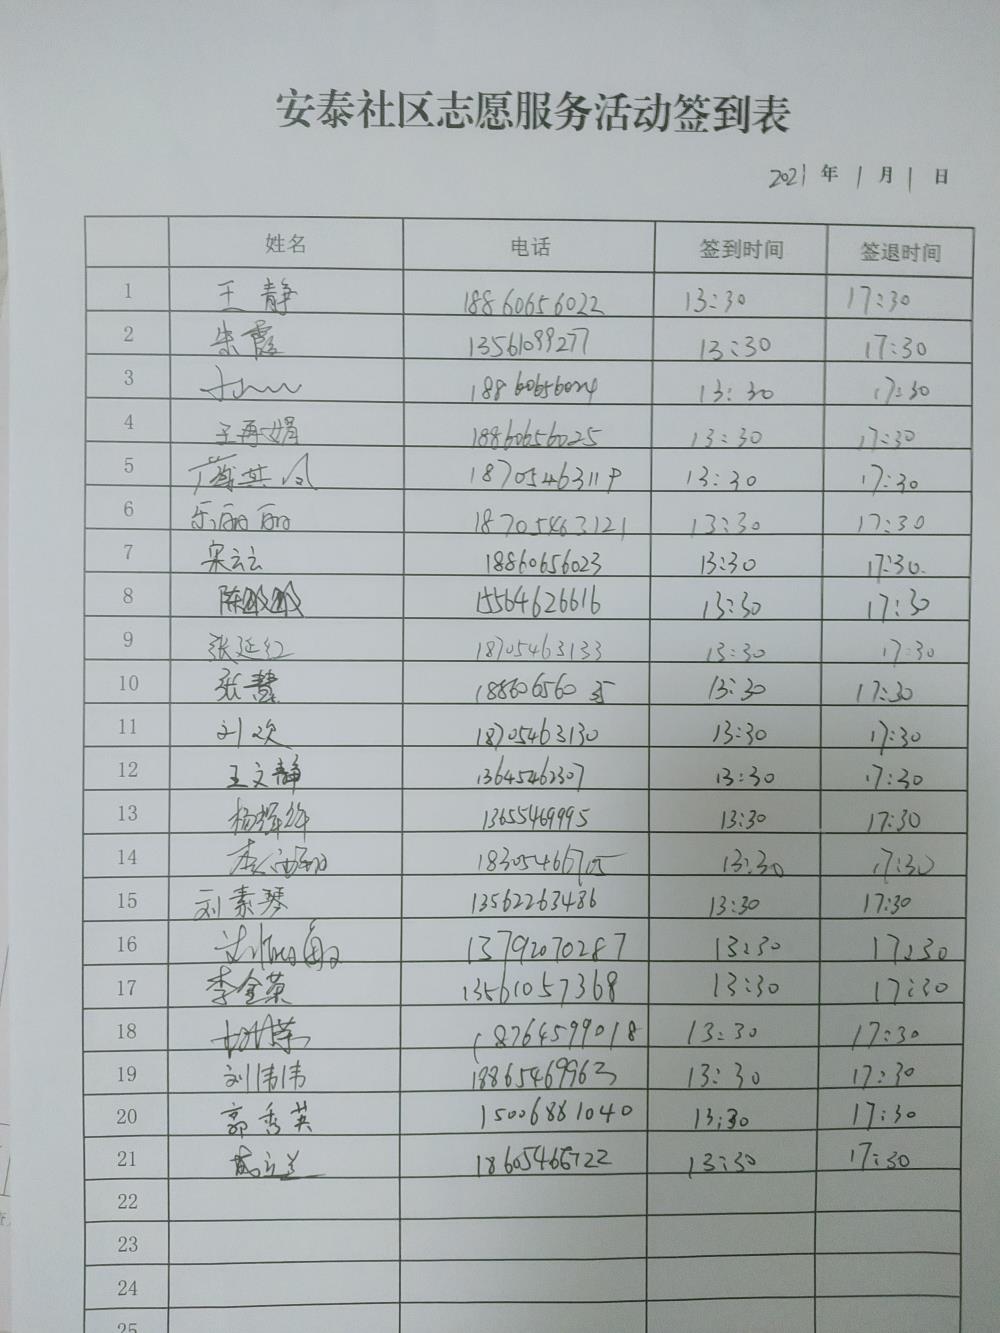 安泰社区志愿服务活动签到表
2021 年 1 月 1 日
姓名 电话 签到时间 签退时间
1 王静 18860656022 13:30 17:30
2 朱霞 13561099277 13:30 17:30
3 18860656024 13:30 17:30
4 王再娟 18860656025 13:30 17:30
5 13:30 17:30
6 乐丽丽 18705463121 13:30 17:30
7 宋云云 18860656023 13:30 17:30
8 陈敏敏 15564626616 13:30 17:30
9 张延红 18705463133 13:30 17:30
10 张慧 13:30 17:30
11 刘欢 18705463130 13:30 17:30
12 王文静 13645462307 13:30 17:30
13 13655469995 13:30 17:30
14 13:30 17:30
15 刘素琴 13562263486 13:30 17:30
16 13792070287 13:30 17:30
17 李金荣 13561057368 13:30 17:30
18 18764599018 13:30 17:30
19 刘伟伟 18865469963 13:30 17:30
20 郭秀英 15006881040 13:30 17:30
21 18605466722 13:30 17:30
22
23
24
25